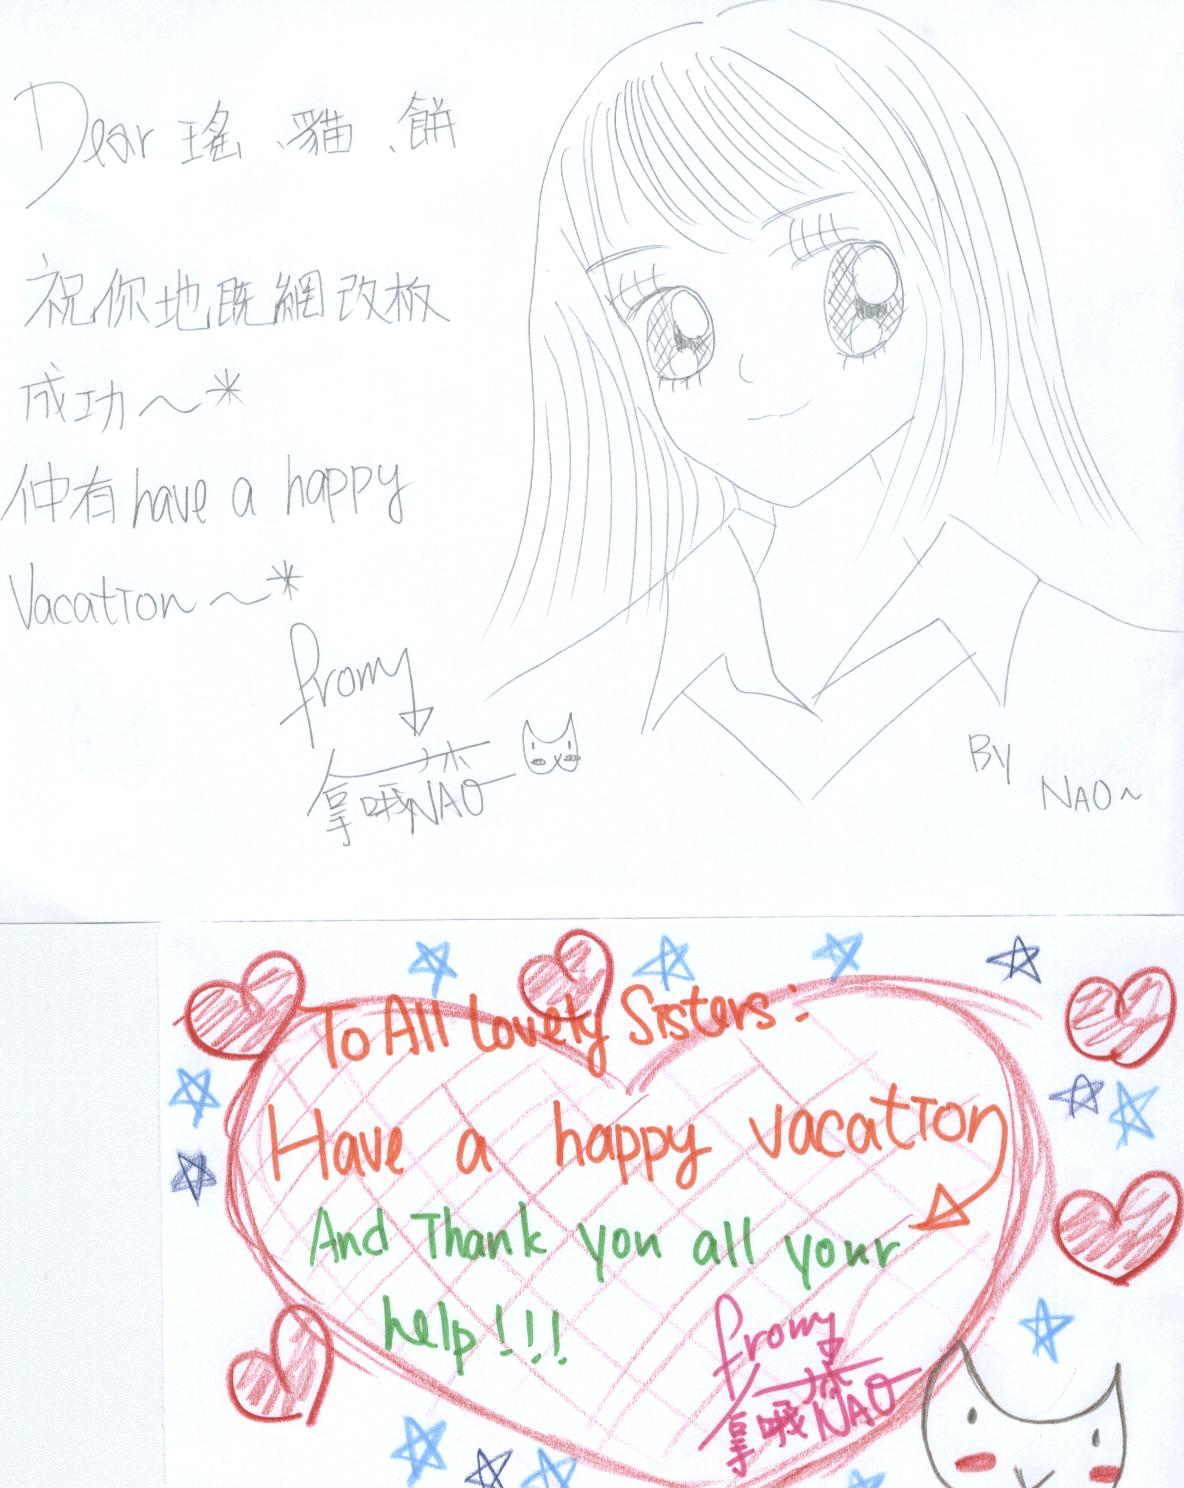 Dear 瑤、貓、餅
祝你地既網改板
成功～*
仲有 have a happy
Vacation～*
From
拿哦NAO
BY
NAO~
To All Lovely Sisters:
Have a happy vacation
And Thank you all your
help!!!
From
拿哦NAO